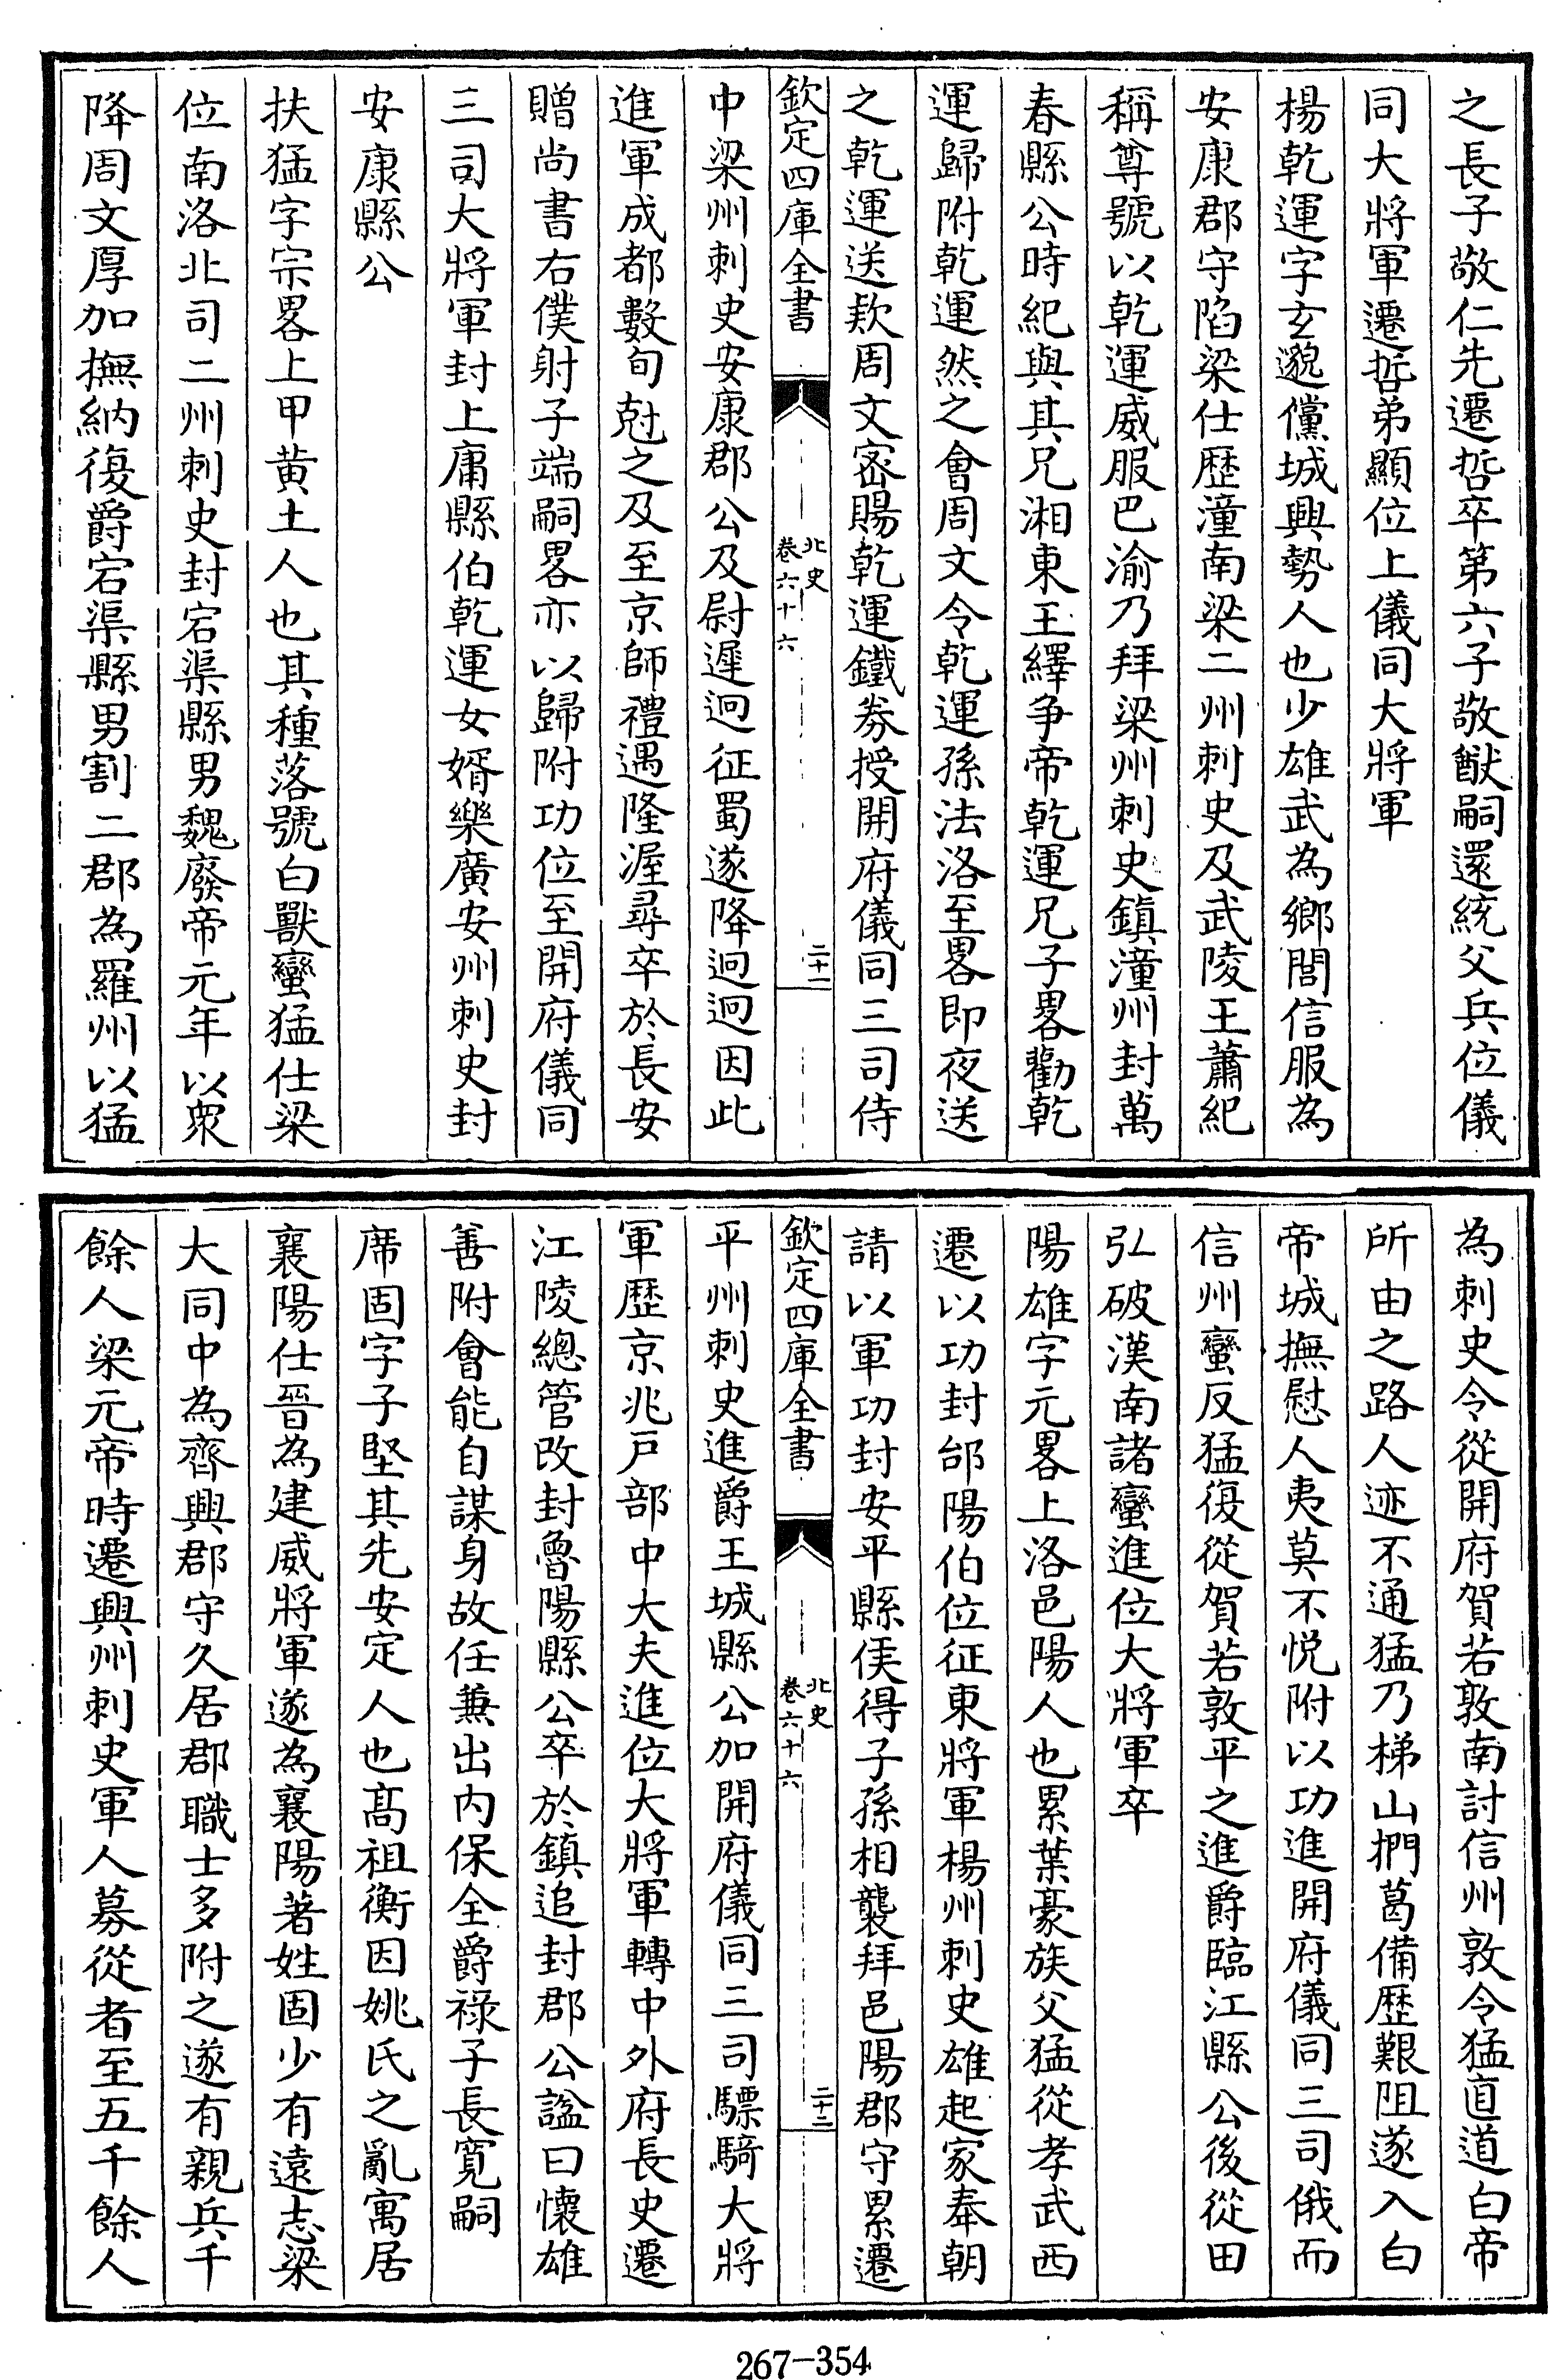 之長子敬仁先遷哲卒第六子敬猷嗣還統父兵位儀
同大將軍遷哲弟顯位上儀同大將軍
楊乾運字玄邈儻城興勢人也少雄武為鄉閭信服為
安康郡守陷梁仕歴潼南梁二州刺史及武陵王蕭紀
稱尊號以乾運威服巴渝乃拜梁州刺史鎮潼州封萬
春縣公時紀與其兄湘東王繹争帝乾運兄子畧勸乾
運歸附乾運然之會周文令乾運孫法洛至畧即夜送
之乾運送欵周文密賜乾運鐵券授開府儀同三司侍
欽定四庫全書
北史
卷六十六
二十一
中梁州刺史安康郡公及尉遲迥征蜀遂降迥迥因此
進軍成都數旬尅之及至京師禮遇隆渥尋卒於長安
贈尚書右僕射子端嗣畧亦以歸附功位至開府儀同
三司大將軍封上庸縣伯乾運女婿樂廣安州刺史封
安康縣公
扶猛字宗畧上甲黄土人也其種落號白獸蠻猛仕梁
位南洛北司二州刺史封宕渠縣男魏廢帝元年以衆
降周文厚加撫納復爵宕渠縣男割二郡為羅州以猛
為刺史令從開府賀若敦南討信州敦令猛直道白帝
所由之路人迹不通猛乃梯山捫葛備歴艱阻遂入白
帝城撫慰人夷莫不悦附以功進開府儀同三司俄而
信州蠻反猛復從賀若敦平之進爵臨江縣公後從田
弘破漢南諸蠻進位大將軍卒
陽雄字元畧上洛邑陽人也累葉豪族父猛從孝武西
遷以功封郃陽伯位征東將軍楊州刺史雄起家奉朝
請以軍功封安平縣侯得子孫相襲拜邑陽郡守累遷
欽定四庫全書
北史
卷六十六
二十二
平州刺史進爵王城縣公加開府儀同三司驃騎大將
軍歴京兆戸部中大夫進位大將軍轉中外府長史遷
江陵總管改封魯陽縣公卒於鎮追封郡公諡曰懷雄
善附會能自謀身故任兼出内保全爵禄子長寛嗣
席固字子堅其先安定人也髙祖衡因姚氏之亂寓居
襄陽仕晉為建威將軍遂為襄陽著姓固少有遠志梁
大同中為齊興郡守久居郡職士多附之遂有親兵千
餘人梁元帝時遷興州刺史軍人募從者至五千餘人
267-354